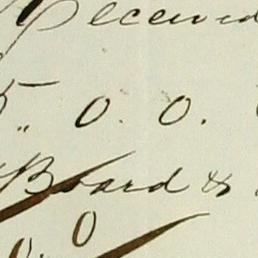 Received
5 " 0. 0.
Board &
0. 0